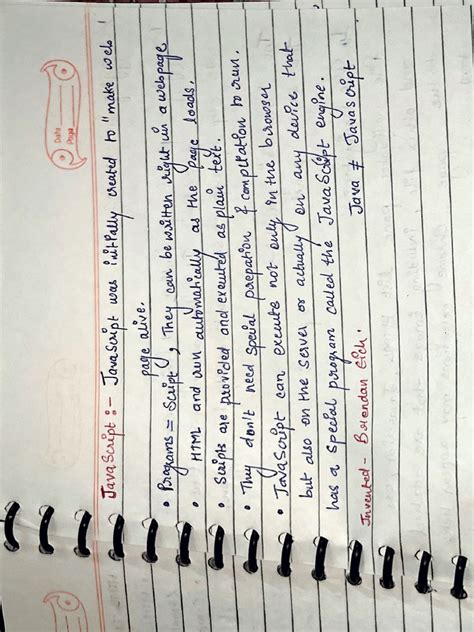 Date
Page
JavaScript :- JavaScript was initially created to "make web
page alive.
• Programs = Script, They can be written right in a webpage
HTML and run automatically as the page loads.
• Scripts are provided and executed as plain text.
• They don't need special prepation & compltation to run.
• JavaScript can execute not only in the browser
but also on the server or actually on any device that
has a special program called the JavaScript engine.
Invented - Berendan Eich. Java ≠ Javascript